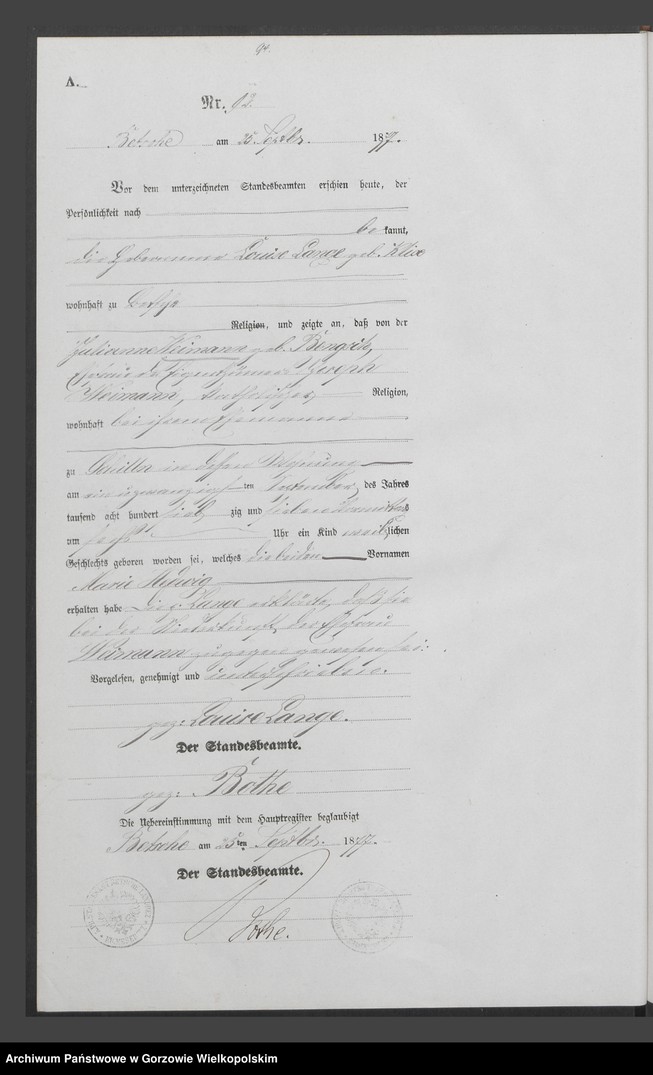 A.
Nr. 92
Betsche am 25 Septbr. 1877.
Vor dem unterzeichneten Standesbeamten erschien heute, der
Persönlichkeit nach
be kannt,
die Hebeamme Louise Lange geb. Klix
wohnhaft zu Betsche
Religion, und zeigte an, daß von der
Julianne Weimann geb. Bengsch,
Ehefrau des Eigenthümers Joseph
Weimann, katholischer Religion,
wohnhaft bei ihrem Ehemanne
zu in dessen Wohnung
am ein u zwanzigsten September des Jahres
tausend acht hundert sieb zig und sieben
um sechs Uhr ein Kind weiblichen
Geschlechts geboren worden sei, welches die beiden Vornamen
Marie Hedwig
erhalten habe Die p. Lange erklärte, daß sie
bei der Niederkunft der Ehefrau
Weimann zugegen gewesen sei.
Vorgelesen, genehmigt und unterschrieben.
gez: Louise Lange.
Der Standesbeamte.
gez: Bothe
Die Uebereinstimmung mit dem Hauptregister beglaubigt
Betsche am 25ten Septbr. 1877.
Der Standesbeamte.
Bothe.
Archiwum Państwowe w Gorzowie Wielkopolskim